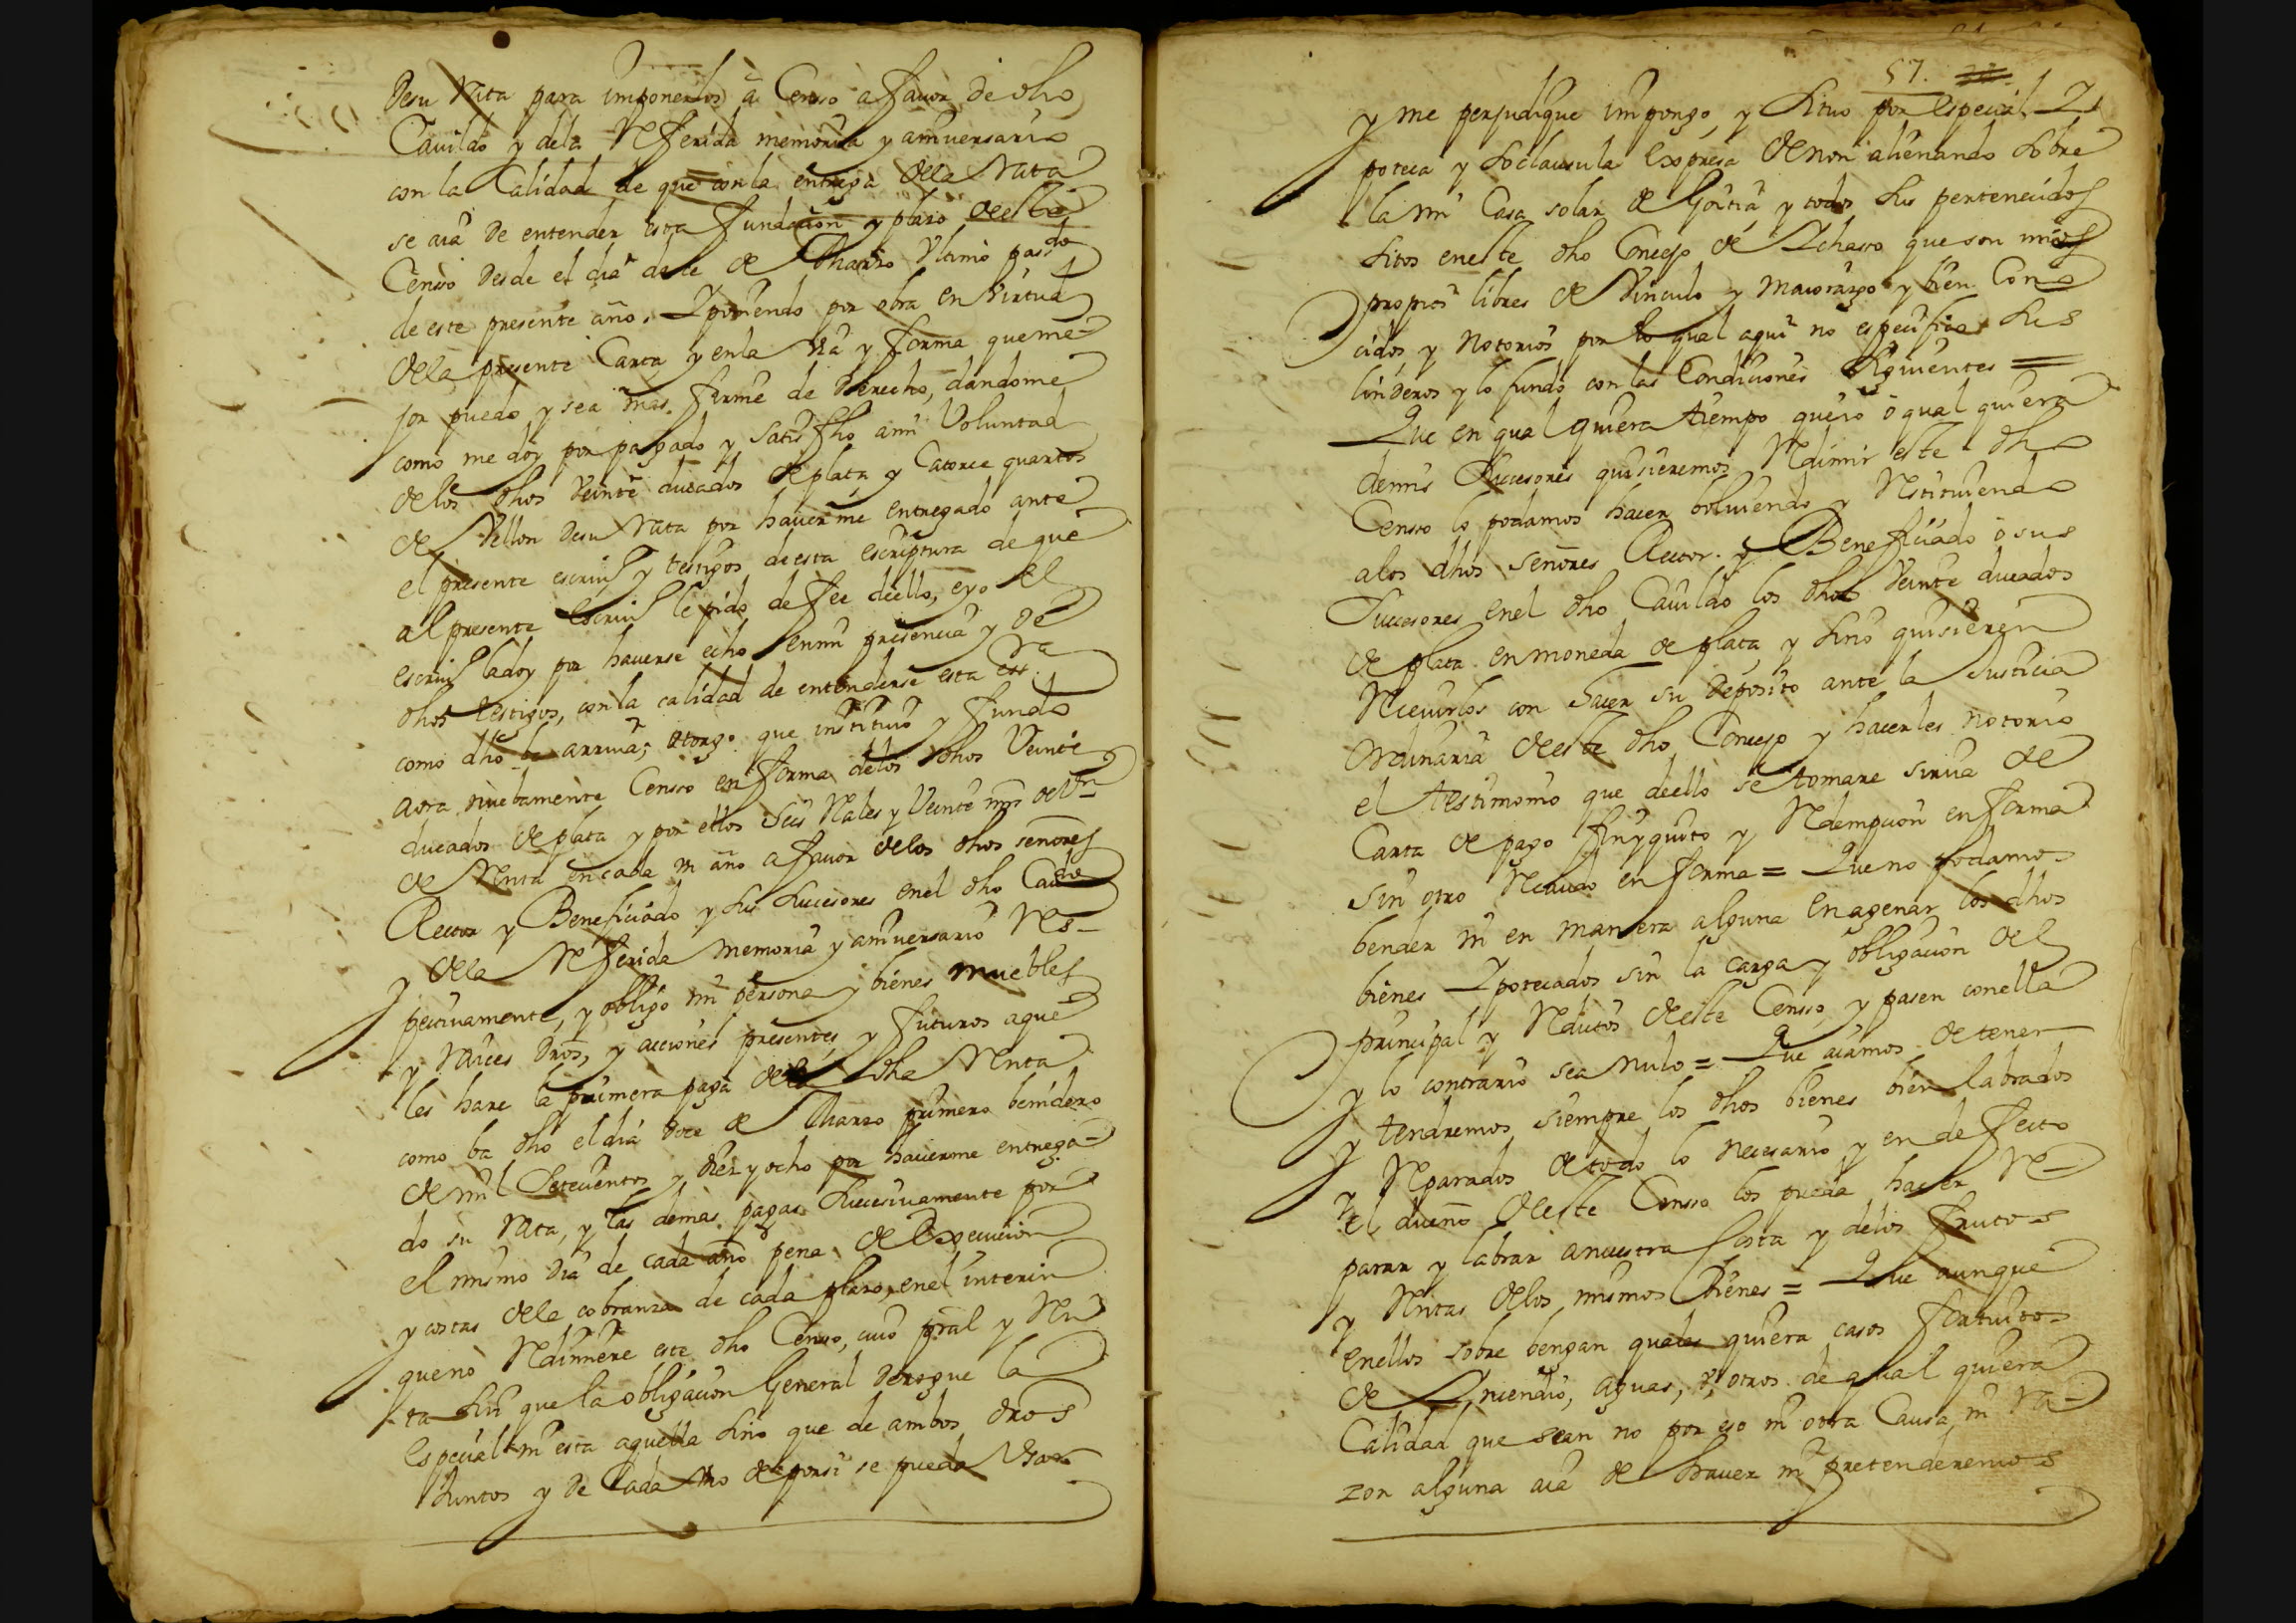 Desu Rata para imponerlos à Censo a fauor de dho
Cauildo y dela Referida memoria y aniuersario
con la Calidad de que con la entrega dela Rata
se aia de entender esta fundacion y plazo deeste
Censo desde el dia doze de Marzo Ultimo passdo
de este presente año. Yponiendo por obra en Virtud
dela presente Carta y enla via y forma queme-
jor puedo y sea mas firme de derecho, dandome
como me doy por pagado y satisfho ami Voluntad
delos dhos Veinte ducados de plata y Catorce quartos
de Vellon desu Rata por hauerme entregado ante
el presente escriuo y testigos deesta escriptura de que
al presente escriuo le pido de fee deello, eyo el
escriuo ladoy por hauerse echo enmi presencia y de
dhos testigos, con la calidad de entenderse esta essra
como dho es arriua; otorgo que instituio y fundo
aora nuebamente Censso en forma delos dhos Veinte
ducados de plata y por ellos Seis Rales y Veinte mrs de Vn
de Renta en cada un año a fauor delos dhos señores
Rector y Beneficiado y sus sucesores enel dho Caudo
y dela Referida memoria y aniuersario Res-
pectiuamente, y obligo mi persona y bienes muebles
y raices dros, y acciones presentes y futuros aque
les hare la primera paga dela dha Renta
como ba dho el dia doze de Marzo primero benidero
de mil Setecientos y diez y ocho por hauerme entrega-
do su Rata, y las demas pagas sucesiuamente por
el mismo dia de cada año pena de Execucion
y costas dela cobranza de cada plazo, enel interin
queno Redimiere este dho Censo, cuio pral y Ren
ta sin que la obligacion General derogue la
Especial ni esta aquella sino que de ambos dros
Juntos y de Cada uno deporsi se pueda Usar
57.
y me perjudique impongo, y situo por especial Y
poteca y so clausula Expresa de non alienando sobre
la mi Casa solar de Goitia y todos sus pertenecidos
sitos eneste dho Concejo de Ichaso que son mios
propios libres de Vinculo y maiorazgo y bien Cono
cidos y notorios por lo qual aqui no especifico sus
linderos y lo fundo con las Condiciones Siguientes =
Que en qual quiera tiempo queio ò qual quiera
demis Sucesores quisieremos Redimir este dho
Censso lo podamos hacer boluiendo y Restituiendo
alos dhos señores Rector y Beneficiado ò sus
Sucesores enel dho Cauildo los dhos Veinte ducados
de plata en moneda de plata y sino quisieren
Reciuirlos con hacer su deposito ante la Justicia
ordinaria deeste dho Concejo y hacerles notorio
el testimonio que deello se tomare sirua de
Carta de pago finyquito y Redempcion en forma
sin otro Recaudo en forma = Que no podamos
bender ni en manera alguna Enagenar los dhos
bienes Ypotecados sin la carga y obligacion del
principal y Reditos deeste Censso, y pasen conella
y lo contrario sea nulo = Que aiamos de tener
y tendremos siempre los dhos bienes bien labrados
y Reparados de todo lo necesario y en defecto
el dueño deeste Censso los pueda hacer Re-
parar y labrar anuestra costa y delos frutos
y Rentas delos mismos Bienes = Que aunque
enellos sobre bengan quales quiera casos fortuitos
de Yncendio, aguas, y otros de qual quiera
Calidad que sean no por eso ni otra Causa ni Ra-
zon alguna aia de hauer ni pretenderemos